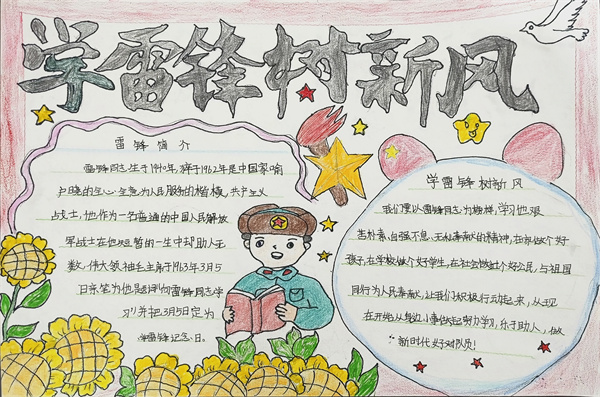 学雷锋树新风
雷锋简介
雷锋同志,生于1940年,辞于1962年是中国家喻
户晓的全心全意为人民服务的楷模,共产主义
战士,他作为一名普通的中国人民解放
军战士在他短暂的一生中却助人无
数,伟大领袖毛主席于1963年3月5
日亲笔为他题词向雷锋同志学
习并把3月5日定为
学雷锋纪念日。
学雷锋树新风
我们要以雷锋同志为榜样,学习他艰
苦朴素,自强不息,无私奉献的精神,在家做个好
孩子,在学校做个好学生,在社会做个好公民,与祖国
同行为人民奉献,让我们积极行动起来,从现
在开始从身边小事做起努力学习,乐于助人,做
"新时代好队员!